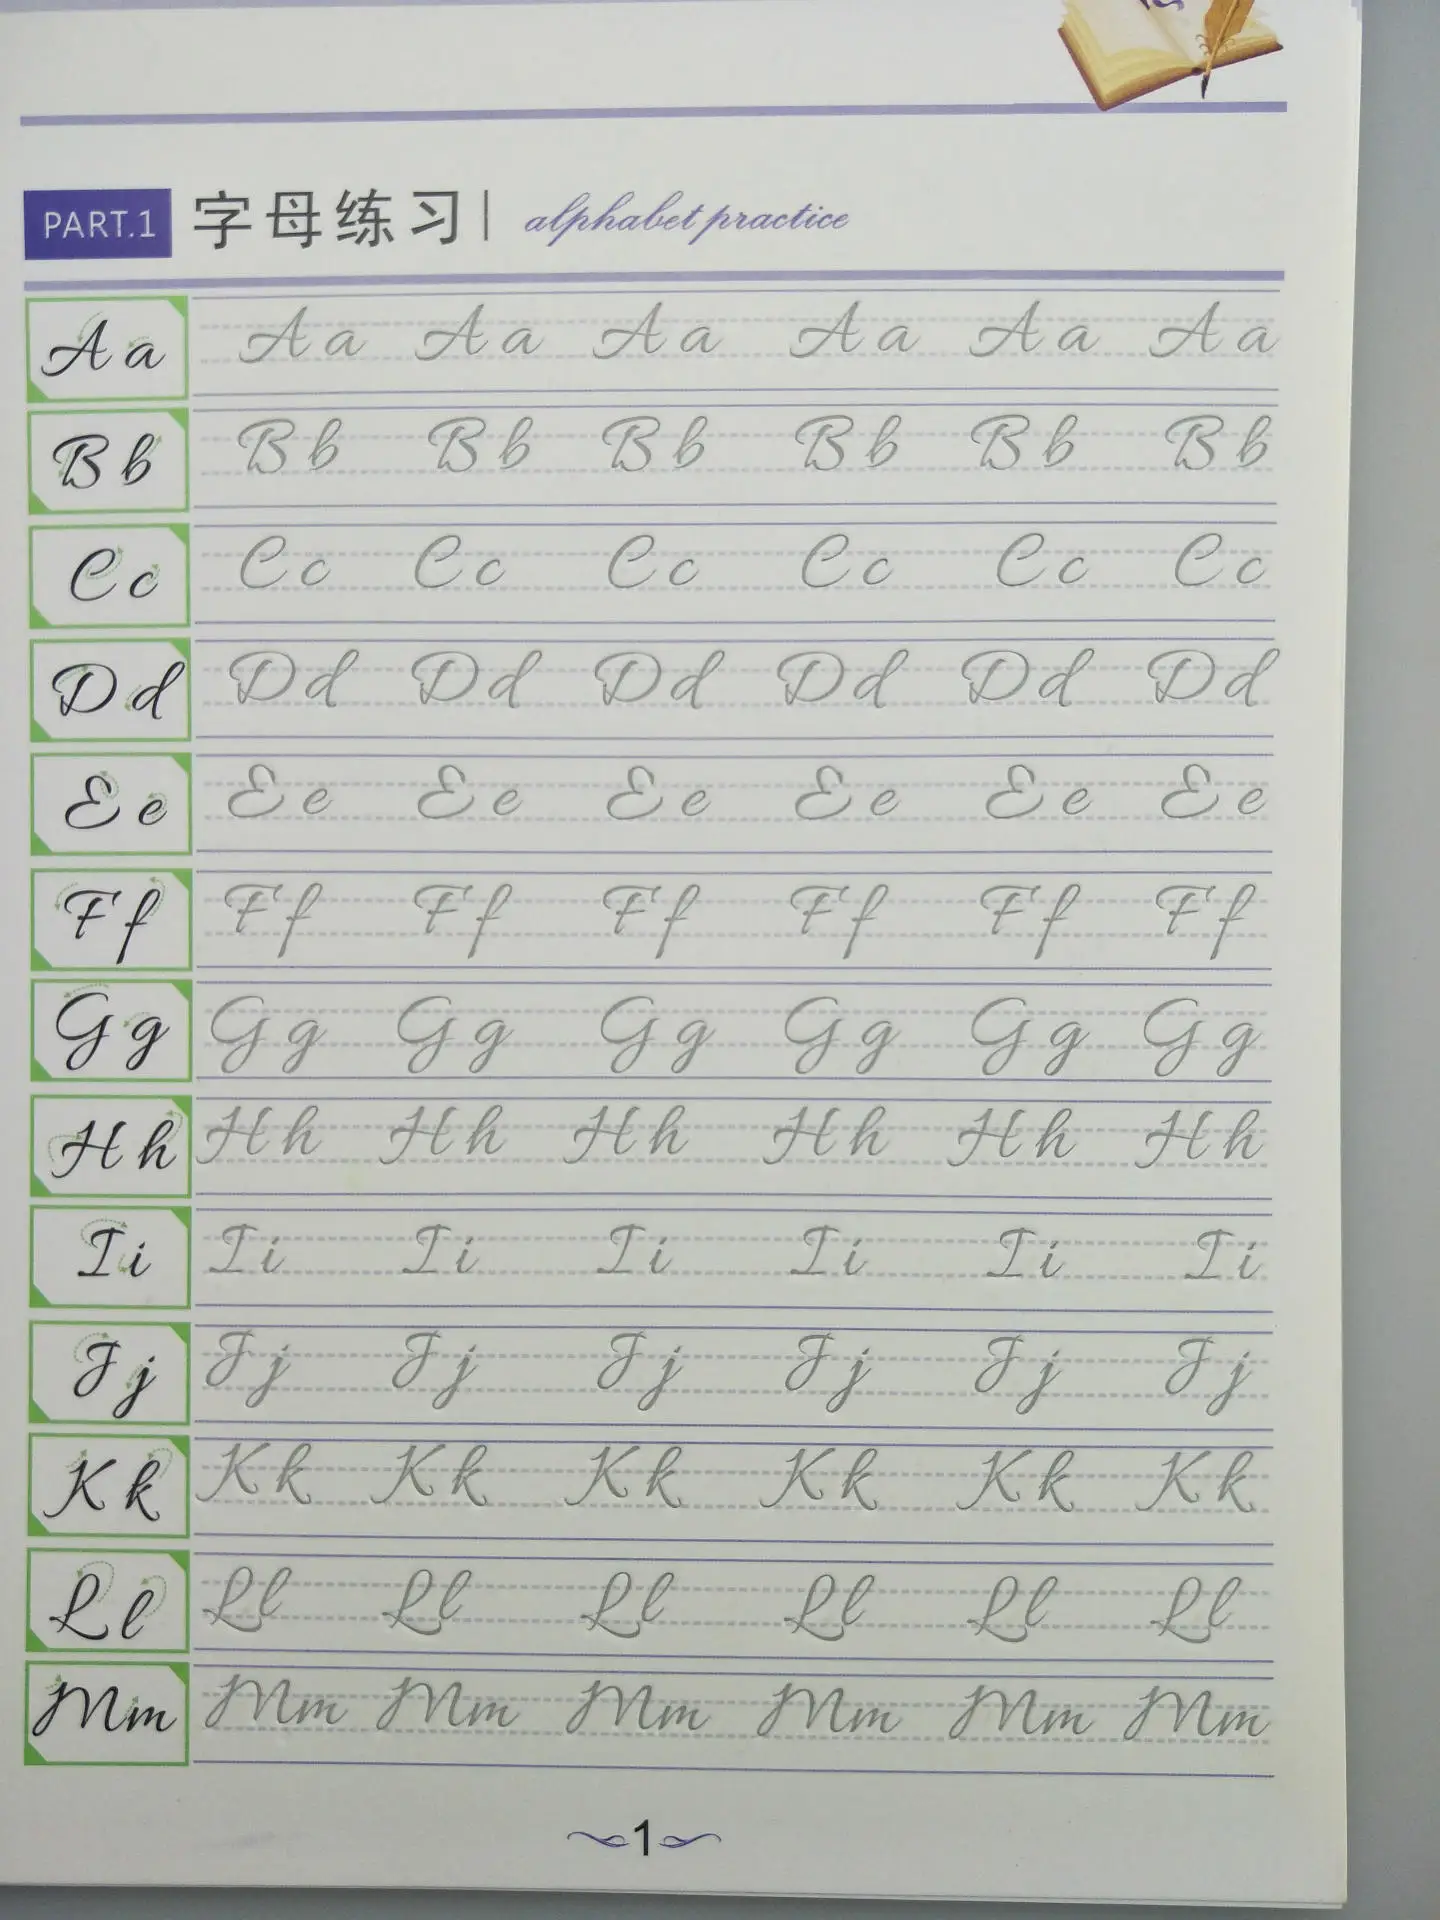 PART.1 字母练习 | alphabet practice
Aa Aa Aa Aa Aa Aa Aa
Bb Bb Bb Bb Bb Bb Bb
Cc Cc Cc Cc Cc Cc Cc
Dd Dd Dd Dd Dd Dd Dd
Ee Ee Ee Ee Ee Ee Ee
Ff Ff Ff Ff Ff Ff Ff
Gg Gg Gg Gg Gg Gg Gg
Hh Hh Hh Hh Hh Hh Hh
Ii Ii Ii Ii Ii Ii Ii
Jj Jj Jj Jj Jj Jj Jj
Kk Kk Kk Kk Kk Kk Kk
Ll Ll Ll Ll Ll Ll Ll
Mm Mm Mm Mm Mm Mm Mm
1